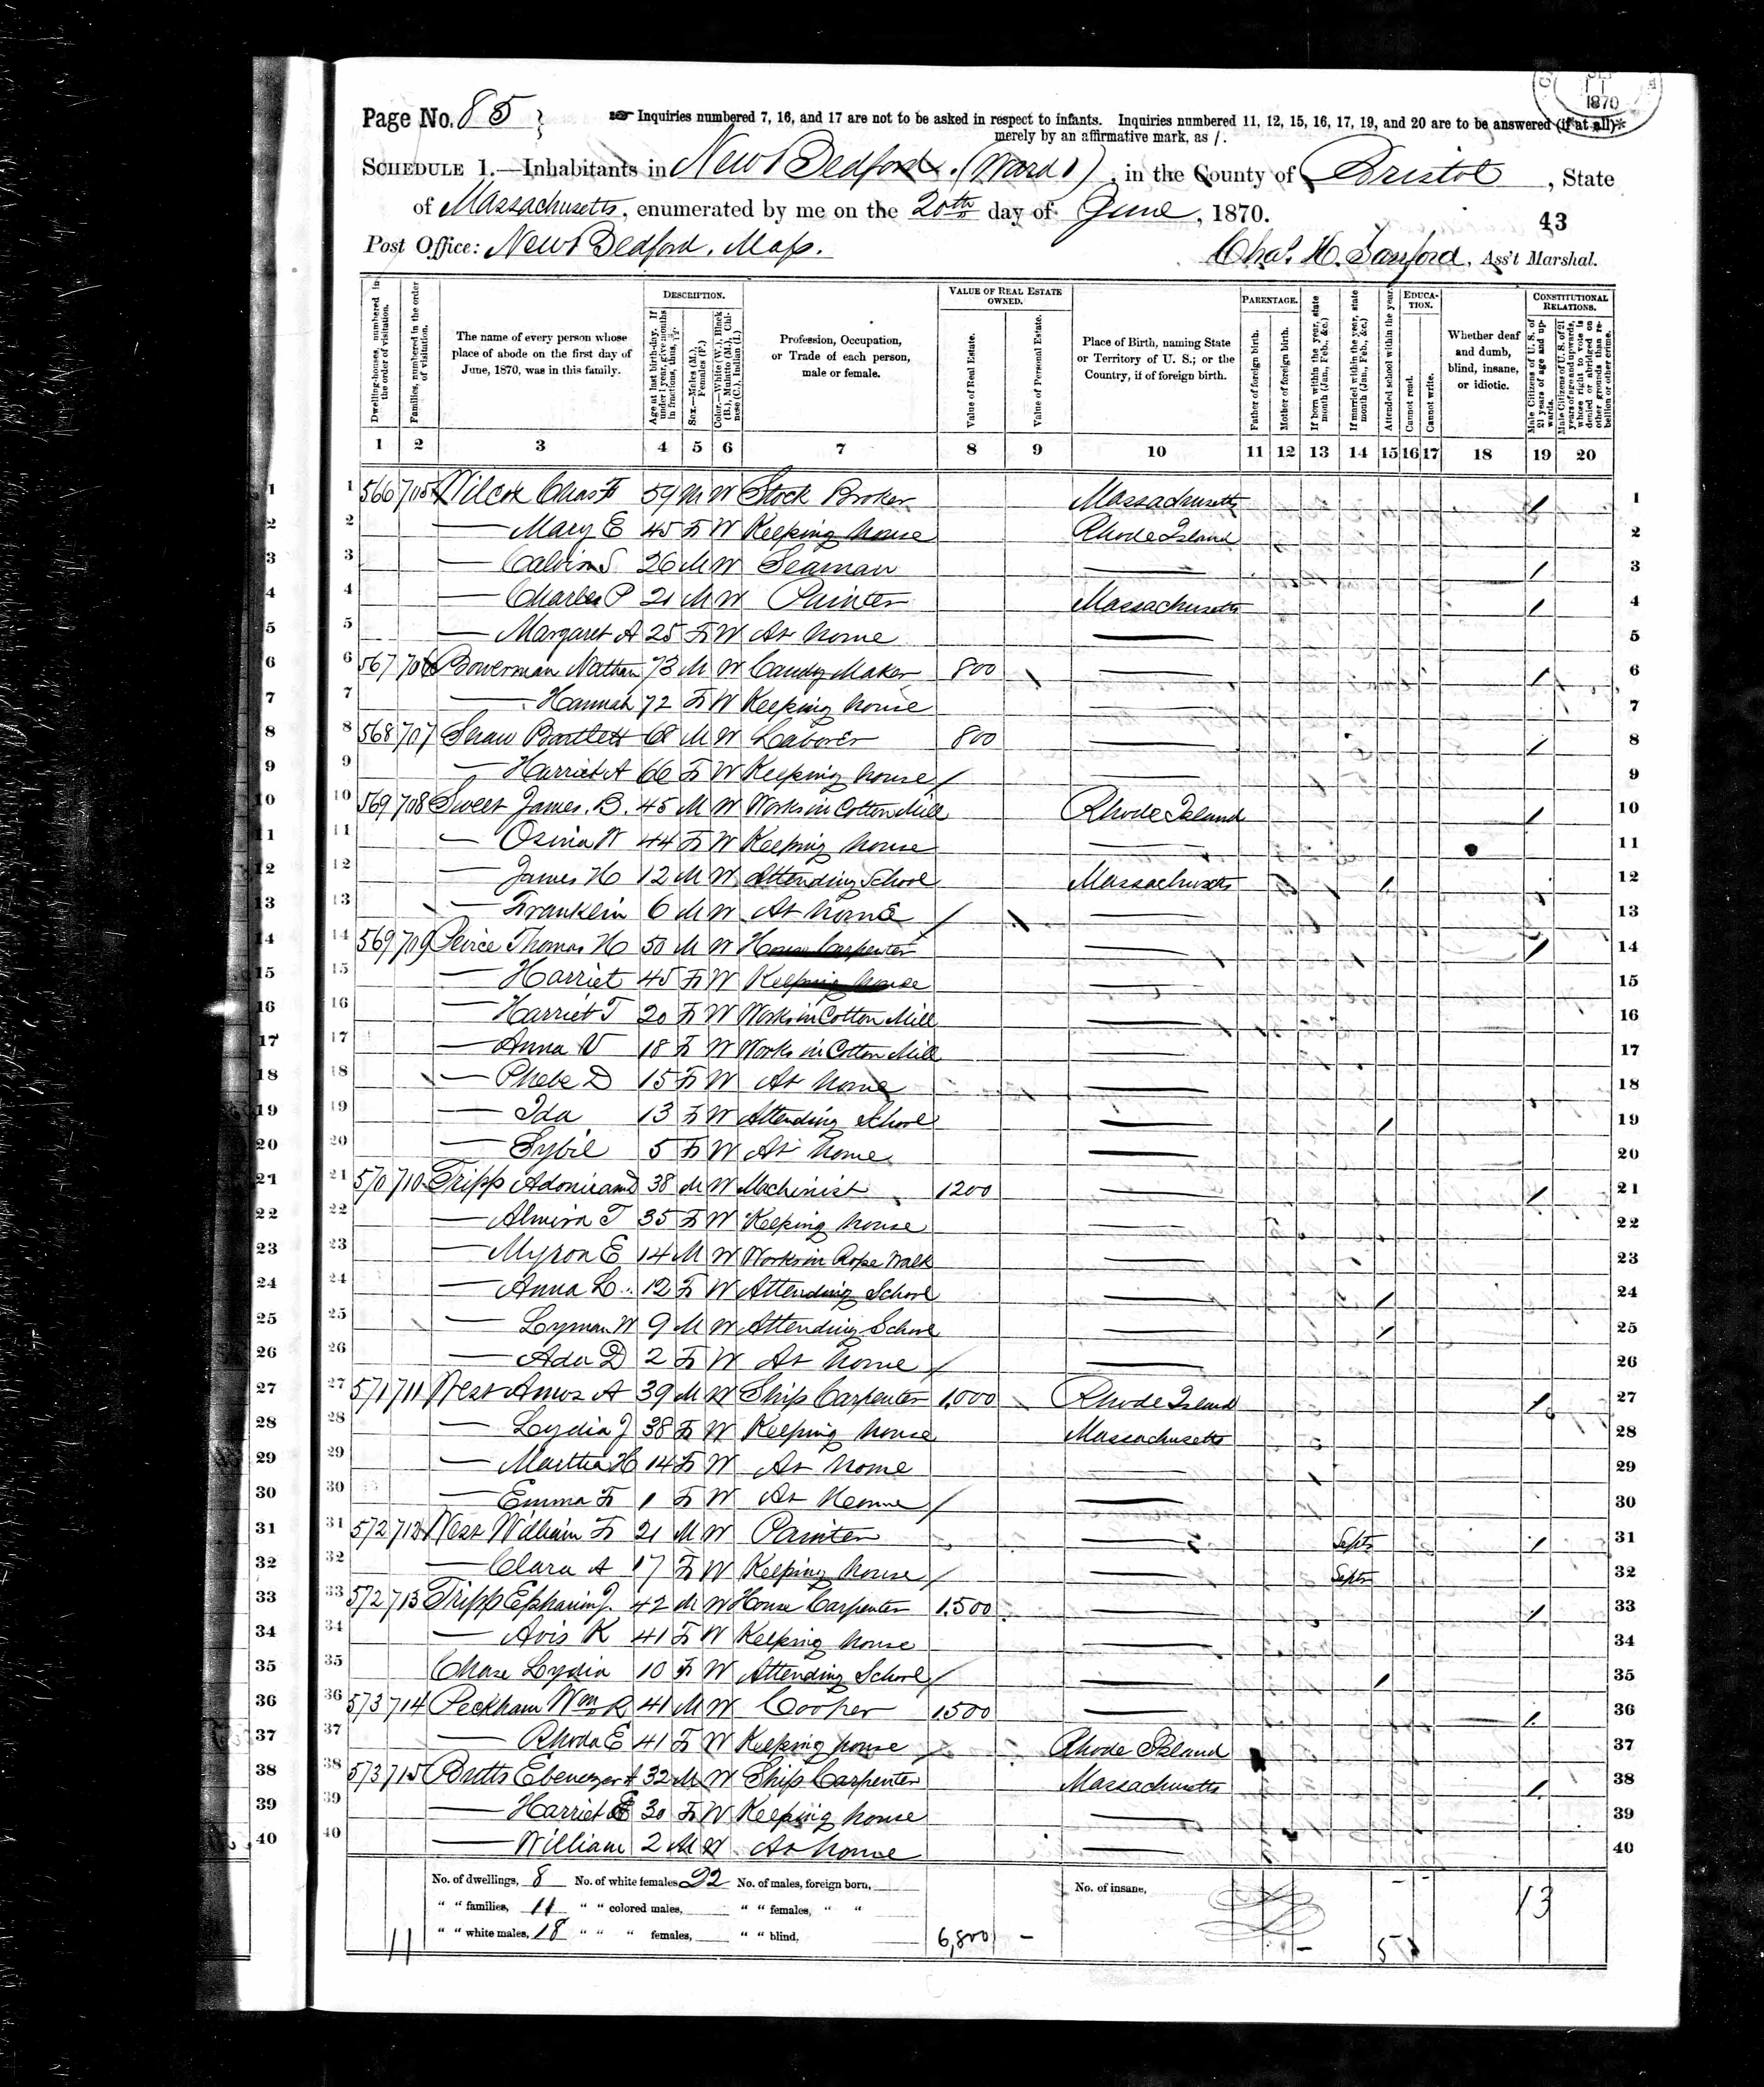 1870
Page No. 85
Inquiries numbered 7, 16, and 17 are not to be asked in respect to infants. Inquiries numbered 11, 12, 15, 16, 17, 19, and 20 are to be answered (if at all)
merely by an affirmative mark, as /.
SCHEDULE 1.—Inhabitants in New Bedford. (Ward 1), in the County of Bristol, State
of Massachusetts, enumerated by me on the 20th day of June, 1870.
43
Post Office: New Bedford, Mass.
Chas. H. Sanford, Ass't Marshal.
Dwelling-houses, numbered in the order of visitation.
Families, numbered in the order of visitation.
The name of every person whose place of abode on the first day of June, 1870, was in this family.
DESCRIPTION.
Age at last birth-day. If under 1 year, give months in fractions, thus, 3/12.
Sex.—Males (M.), Females (F.)
Color.—White (W.), Black (B.), Mulatto (M.), Chinese (C.), Indian (I.)
Profession, Occupation, or Trade of each person, male or female.
VALUE OF REAL ESTATE OWNED.
Value of Real Estate.
Value of Personal Estate.
Place of Birth, naming State or Territory of U. S.; or the Country, if of foreign birth.
PARENTAGE.
Father of foreign birth.
Mother of foreign birth.
If born within the year, state month (Jan., Feb., &c.)
If married within the year, state month (Jan., Feb., &c.)
Attended school within the year.
EDUCATION.
Cannot read.
Cannot write.
Whether deaf and dumb, blind, insane, or idiotic.
CONSTITUTIONAL RELATIONS.
Male Citizens of U. S. of 21 years of age and upwards.
Male Citizens of U. S. of 21 years of age and upwards, whose right to vote is denied or abridged on other grounds than rebellion or other crime.
1 2 3 4 5 6 7 8 9 10 11 12 13 14 15 16 17 18 19 20
1 1 566 705 Wilcox Chas F 59 M W Stock Broker Massachusetts / 1
2 2 — Mary E 45 F W Keeping house Rhode Island 2
3 3 — Calvin S 26 M W Seaman — / 3
4 4 — Charles P 21 M W Painter Massachusetts / 4
5 5 — Margaret A 25 F W At home — 5
6 6 567 706 Bowerman Nathan 73 M W Candy Maker 800 — / 6
7 7 — Hannah 72 F W Keeping house — 7
8 8 568 707 Shaw Bartlett 68 M W Laborer 800 — / 8
9 9 — Harriet A 66 F W Keeping house / — 9
10 10 569 708 Sweet James. B. 45 M W Works in Cotton Mill Rhode Island / 10
11 11 — W 44 F W Keeping house — 11
12 12 — James H 12 M W Attending School Massachusetts / 12
13 13 — Franklin 6 M W At home / — 13
14 14 569 709 Peirce Thomas H 50 M W House Carpenter — / 14
15 15 — Harriet 45 F W Keeping house — 15
16 16 — Harriet T 20 F W Works in Cotton Mill — 16
17 17 — Anna V 18 F W Works in Cotton Mill — 17
18 18 — Phebe D 15 F W At home — 18
19 19 — Ida 13 F W Attending School — / 19
20 20 — Sybil 5 F W At home — 20
21 21 570 710 Tripp Adoniram D 38 M W Machinist 1200 — / 21
22 22 — Almira T 35 F W Keeping house — 22
23 23 — Myron E 14 M W Works in Rope Walk — 23
24 24 — Anna L. 12 F W Attending School — / 24
25 25 — Lyman W 9 M W Attending School — / 25
26 26 — Ada D 2 F W At home / — 26
27 27 571 711 West Amos A 39 M W Ship Carpenter 1,000 Rhode Island / 27
28 28 — Lydia J 38 F W Keeping house Massachusetts 28
29 29 — Martha H 14 F W At home — 29
30 30 — Emma F 1 F W At home / — 30
31 31 572 712 West William F 21 M W Painter — Sept / 31
32 32 — Clara A 17 F W Keeping house / — Sept 32
33 33 572 713 Tripp Ephraim J. 42 M W House Carpenter 1,500 — / 33
34 34 — Avis K 41 F W Keeping house — 34
35 35 Chase Lydia 10 F W Attending School / — / 35
36 36 573 714 Peckham Wm R 41 M W Cooper 1500 — / 36
37 37 — Rhoda E 41 F W Keeping house / Rhode Island 37
38 38 573 715 Butts Ebenezer A 32 M W Ship Carpenter Massachusetts / 38
39 39 — Harriet E 30 F W Keeping house — 39
40 40 — William 2 M W At home — 40
No. of dwellings, 8 No. of white females, 22 No. of males, foreign born, No. of insane, 13
" " families, 11 " " colored males, " " females, " "
11 " " white males, 18 " " " females, " " blind, 6,800 — — 5